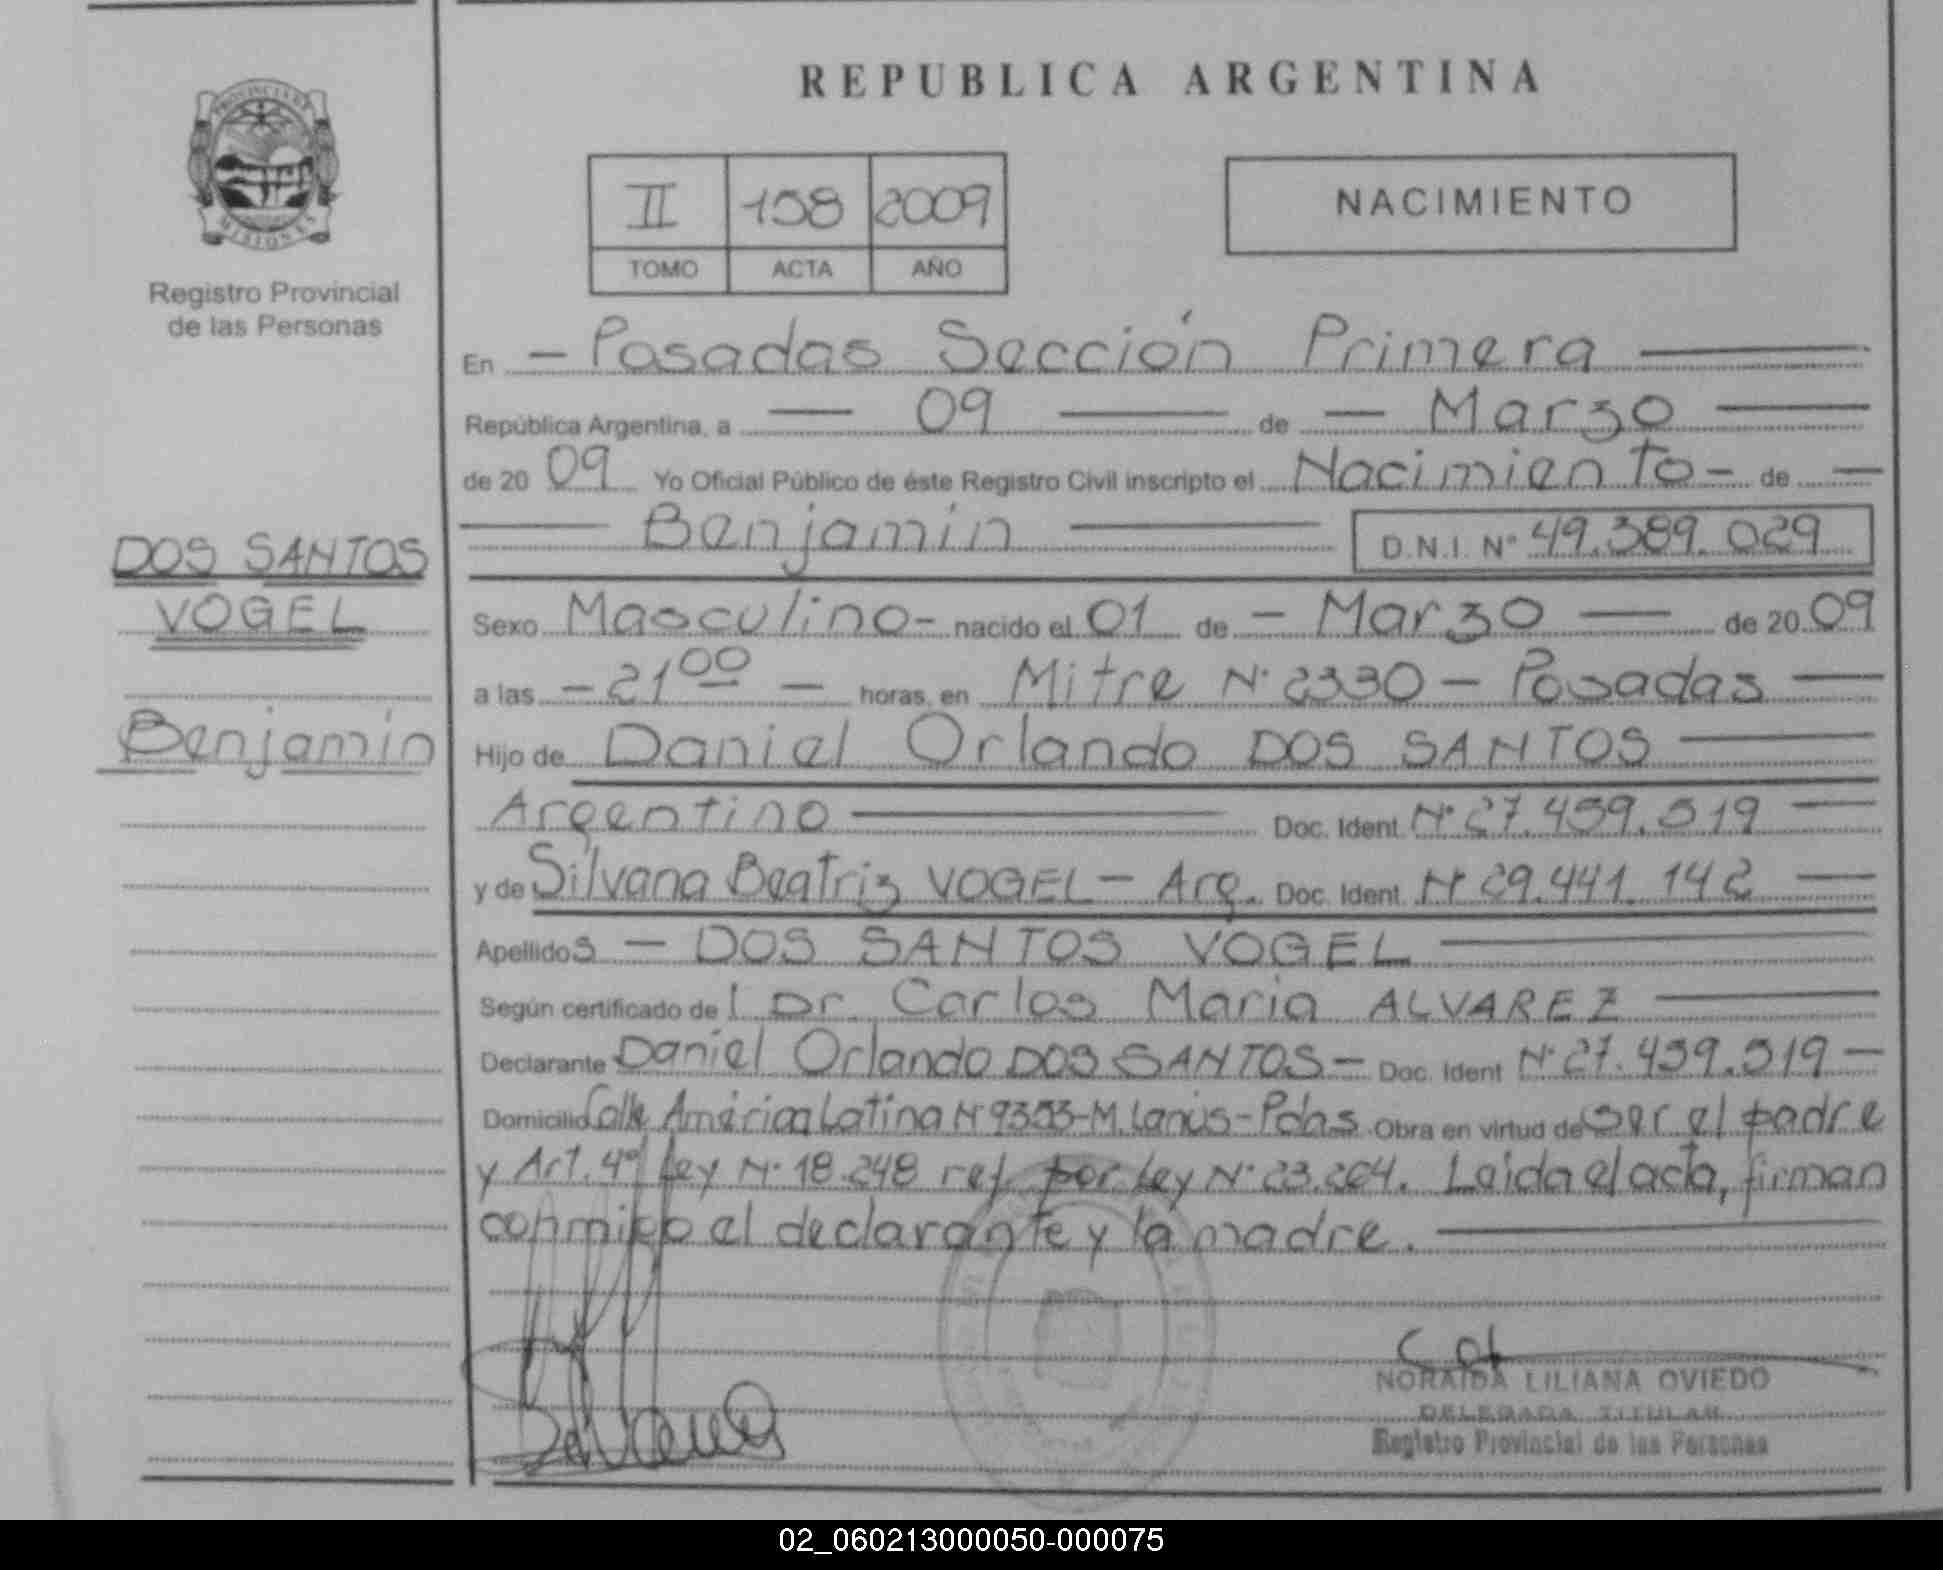 REPUBLICA ARGENTINA
PROVINCIA DE
MISIONES
Registro Provincial
de las Personas
II 158 2009
TOMO ACTA AÑO
NACIMIENTO
En - Posadas Sección Primera
República Argentina, a 09 de - Marzo
de 20 09 Yo Oficial Público de éste Registro Civil inscripto el Nacimiento - de
Benjamín D.N.I. Nº 49.389.029
DOS SANTOS
VOGEL
Benjamín
Sexo Masculino - nacido el 01 de - Marzo de 20 09
a las - 21 00 - horas, en Mitre Nº 2330 - Posadas
Hijo de Daniel Orlando DOS SANTOS
Argentino Doc. Ident Nº 27.459.519
y de Silvana Beatriz VOGEL - Arg. Doc. Ident. Nº 29.441.142
Apellidos - DOS SANTOS VOGEL
Según certificado de l Dr. Carlos Maria ALVAREZ
Declarante Daniel Orlando DOS SANTOS - Doc. Ident Nº 27.459.519 -
Domicilio Calle América Latina Nº 9353-M. Lanús-Pdas. Obra en virtud de ser el padre
y Art. 4º Ley Nº 18.248 ref. por Ley Nº 23.264. Leida el acta, firman
conmigo el declarante y la madre.
NORAIDA LILIANA OVIEDO
DELEGADA TITULAR
Registro Provincial de las Personas
02_060213000050-000075